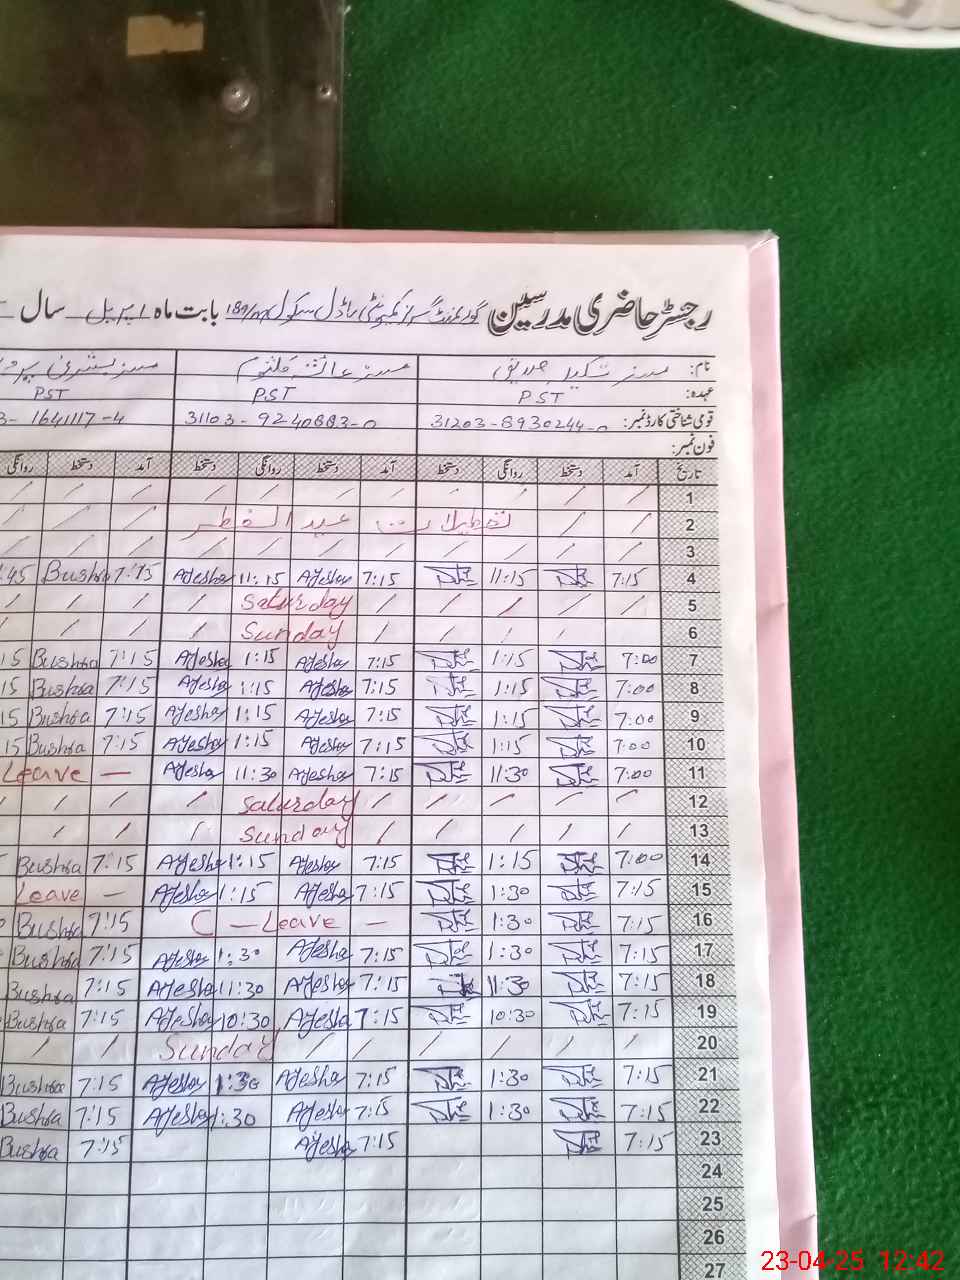 رجسٹر حاضری مدرسین گورنمنٹ گرلز کمیونٹی ماڈل سکول بابت ماہ اپریل سال
نام: مسز شکیلہ صدیق مسز عائشہ کلثوم مسز بشریٰ
عہدہ: PST PST PST
قومی شناختی کارڈ نمبر: 31203-8930244-0 31103-9240883-0 3-1641117-4
فون نمبر:
تاریخ آمد دستخط روانگی دستخط آمد دستخط روانگی دستخط آمد دستخط روانگی
1 / / / / / / / / / / /
2 / / تعطیلات عید الفطر / / /
3 / / / / / / / / / / /
4 7:15 11:15 7:15 Ayesha 11:15 Ayesha 7:15 Bushra :45
5 / / / / / Saturday / / / /
6 / / / / / Sunday / / / /
7 7:00 1:15 7:15 Ayesha 1:15 Ayesha 7:15 Bushra 15
8 7:00 1:15 7:15 Ayesha 1:15 Ayesha 7:15 Bushra 15
9 7:00 1:15 7:15 Ayesha 1:15 Ayesha 7:15 Bushra 15
10 7:00 1:15 7:15 Ayesha 1:15 Ayesha 7:15 Bushra 15
11 7:00 11:30 7:15 Ayesha 11:30 Ayesha — Leave
12 / / / / / Saturday / / / /
13 / / / / / Sunday / / /
14 7:00 1:15 7:15 Ayesha 1:15 Ayesha 7:15 Bushra
15 7:15 1:30 7:15 Ayesha 1:15 Ayesha — Leave
16 7:15 1:30 C — Leave — 7:15 Bushra
17 7:15 1:30 7:15 Ayesha 1:30 Ayesha 7:15 Bushra
18 7:15 11:30 7:15 Ayesha 11:30 Ayesha 7:15 Bushra
19 7:15 10:30 7:15 Ayesha 10:30 Ayesha 7:15 Bushra
20 / / / / / / Sunday / /
21 7:15 1:30 7:15 Ayesha 1:30 Ayesha 7:15 Bushra
22 7:15 1:30 7:15 Ayesha 1:30 Ayesha 7:15 Bushra
23 7:15 7:15 Ayesha 7:15 Bushra
24
25
26
27
23-04-25 12:42